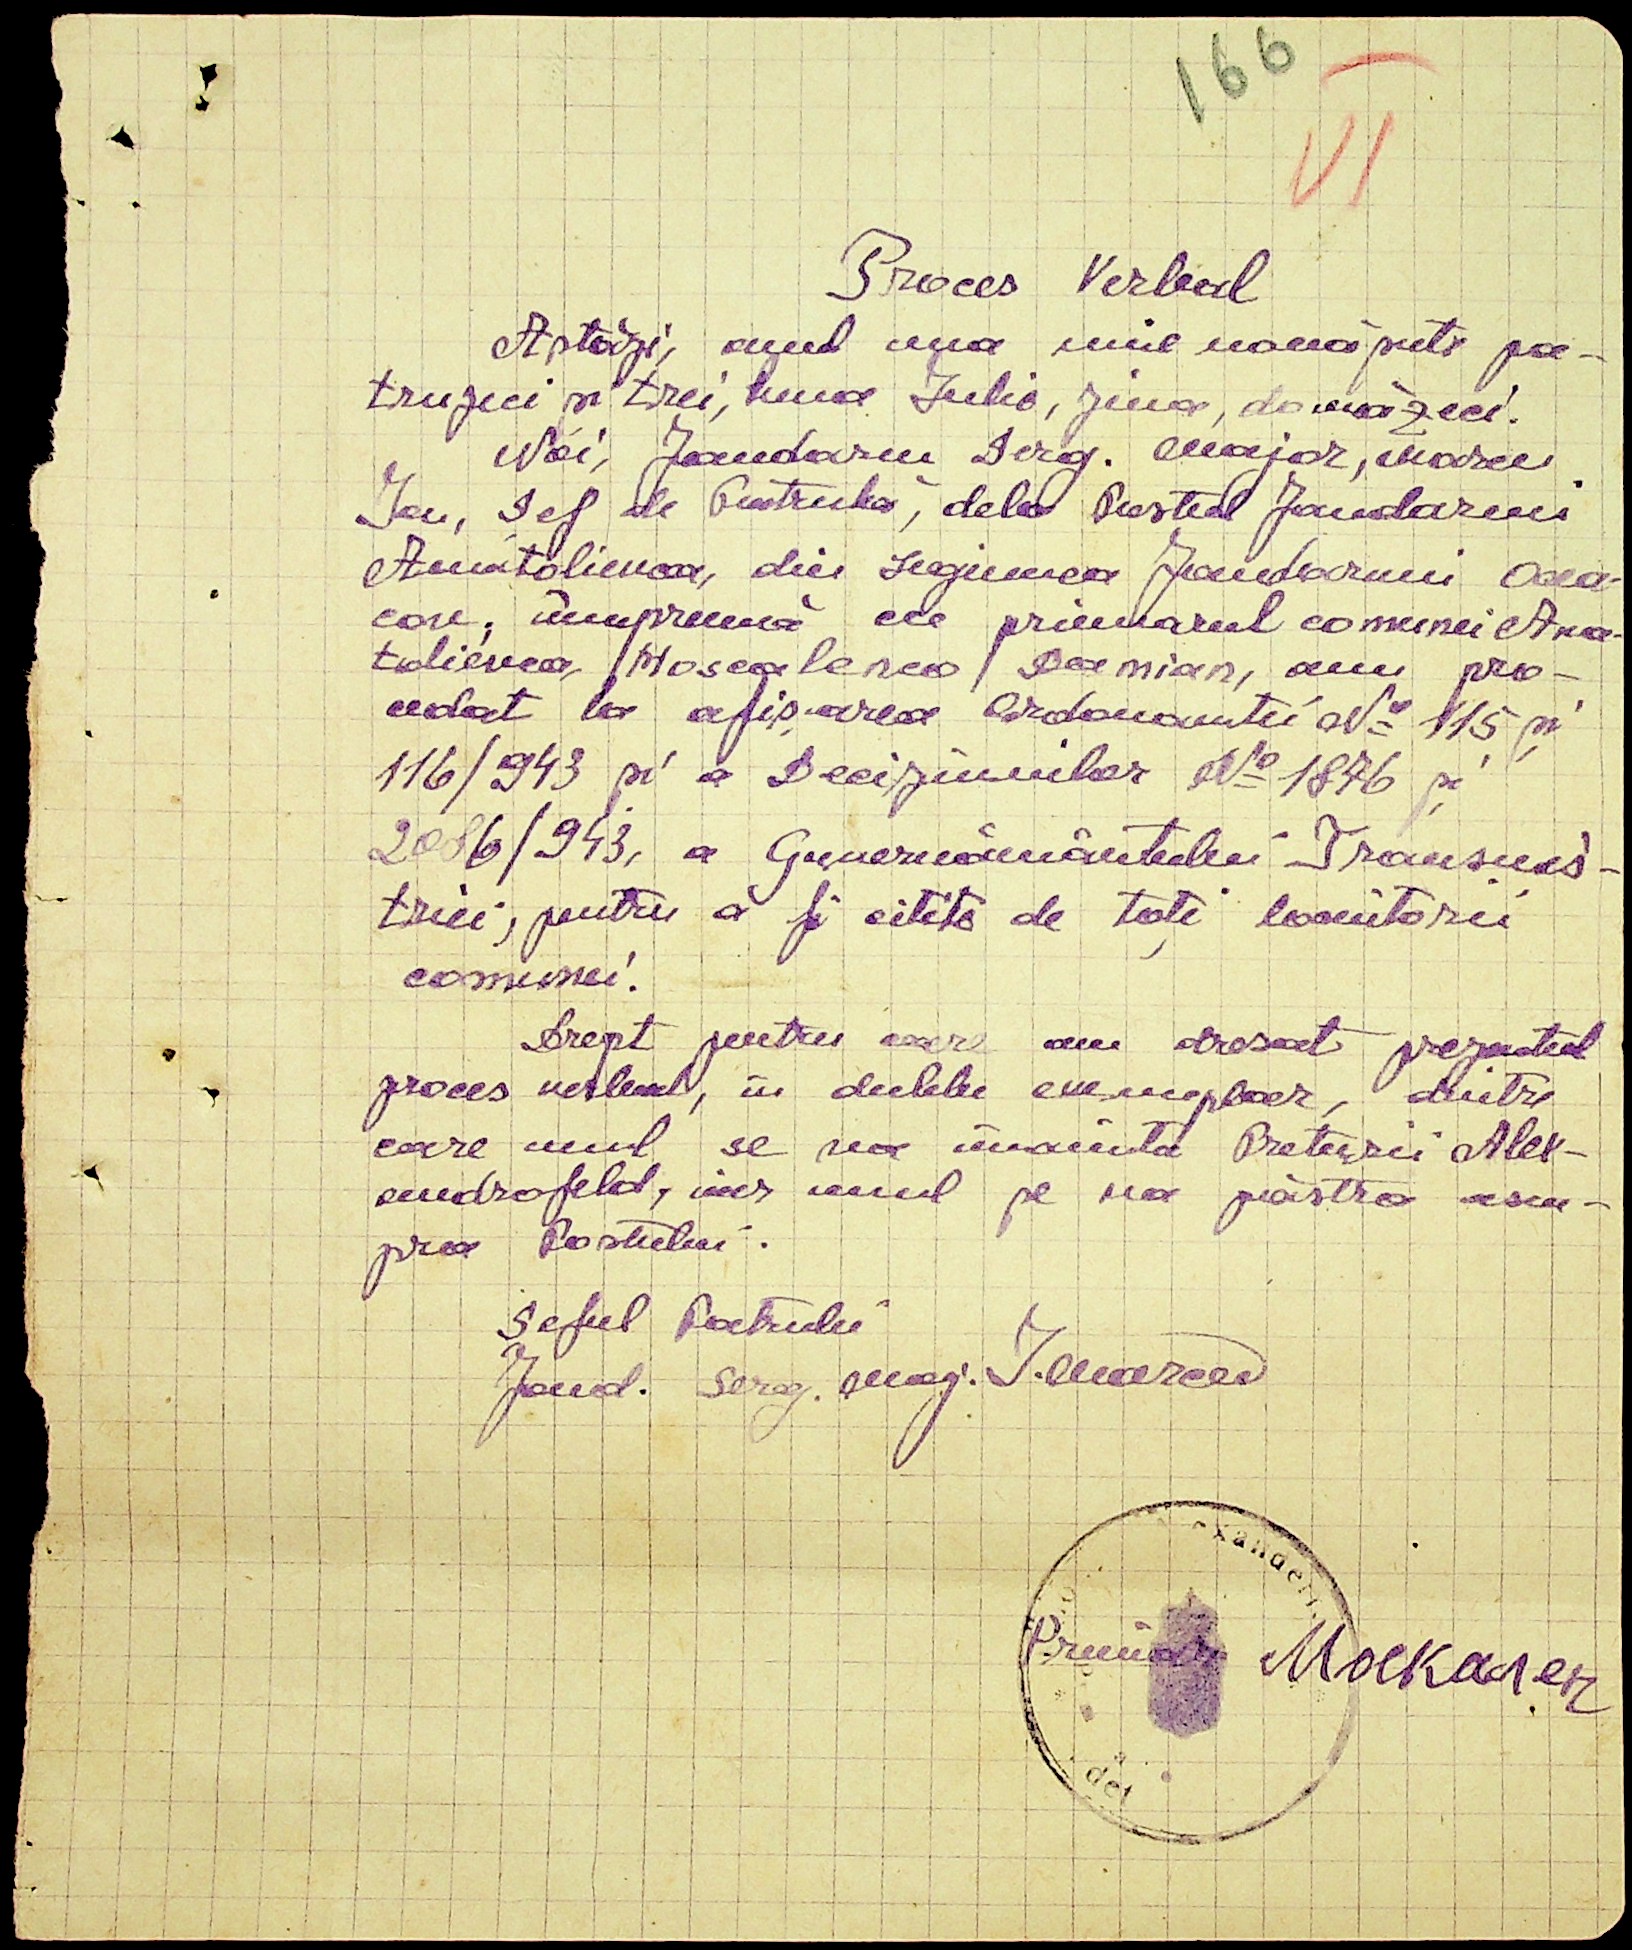 166
VI
Proces Verbal
Astăzi, anul una mie nouă sute pa-
truzeci și trei, luna Iulie, ziua, douăzeci.
Noi, Jandarm Serg. Major, Marcu
Ion, Șef de Patrulă, dela Postul Jandarmi
Anatolievca, din Legiunea Jandarmi Oceа-
cov, împreună cu primarul comunei Ana-
tolievca, Moscalenco Damian, am pro-
cedat la afișarea Ordonantei No 115 și
116/943 și a Deciziunilor No 1876 și
2086/943, a Guvernământului Transnis-
triei, pentru a fi citite de toți locuitorii
comunei.
Drept pentru care am dresat prezentul
proces verbal, în dublu exemplar, dintre
care unul se va înainta Preturii Alex-
androfeld, iar unul se va păstra asu-
pra Postului.
Șeful Patrulei
Jand. Serg. Maj. I. Marcu
Primar Москален
det